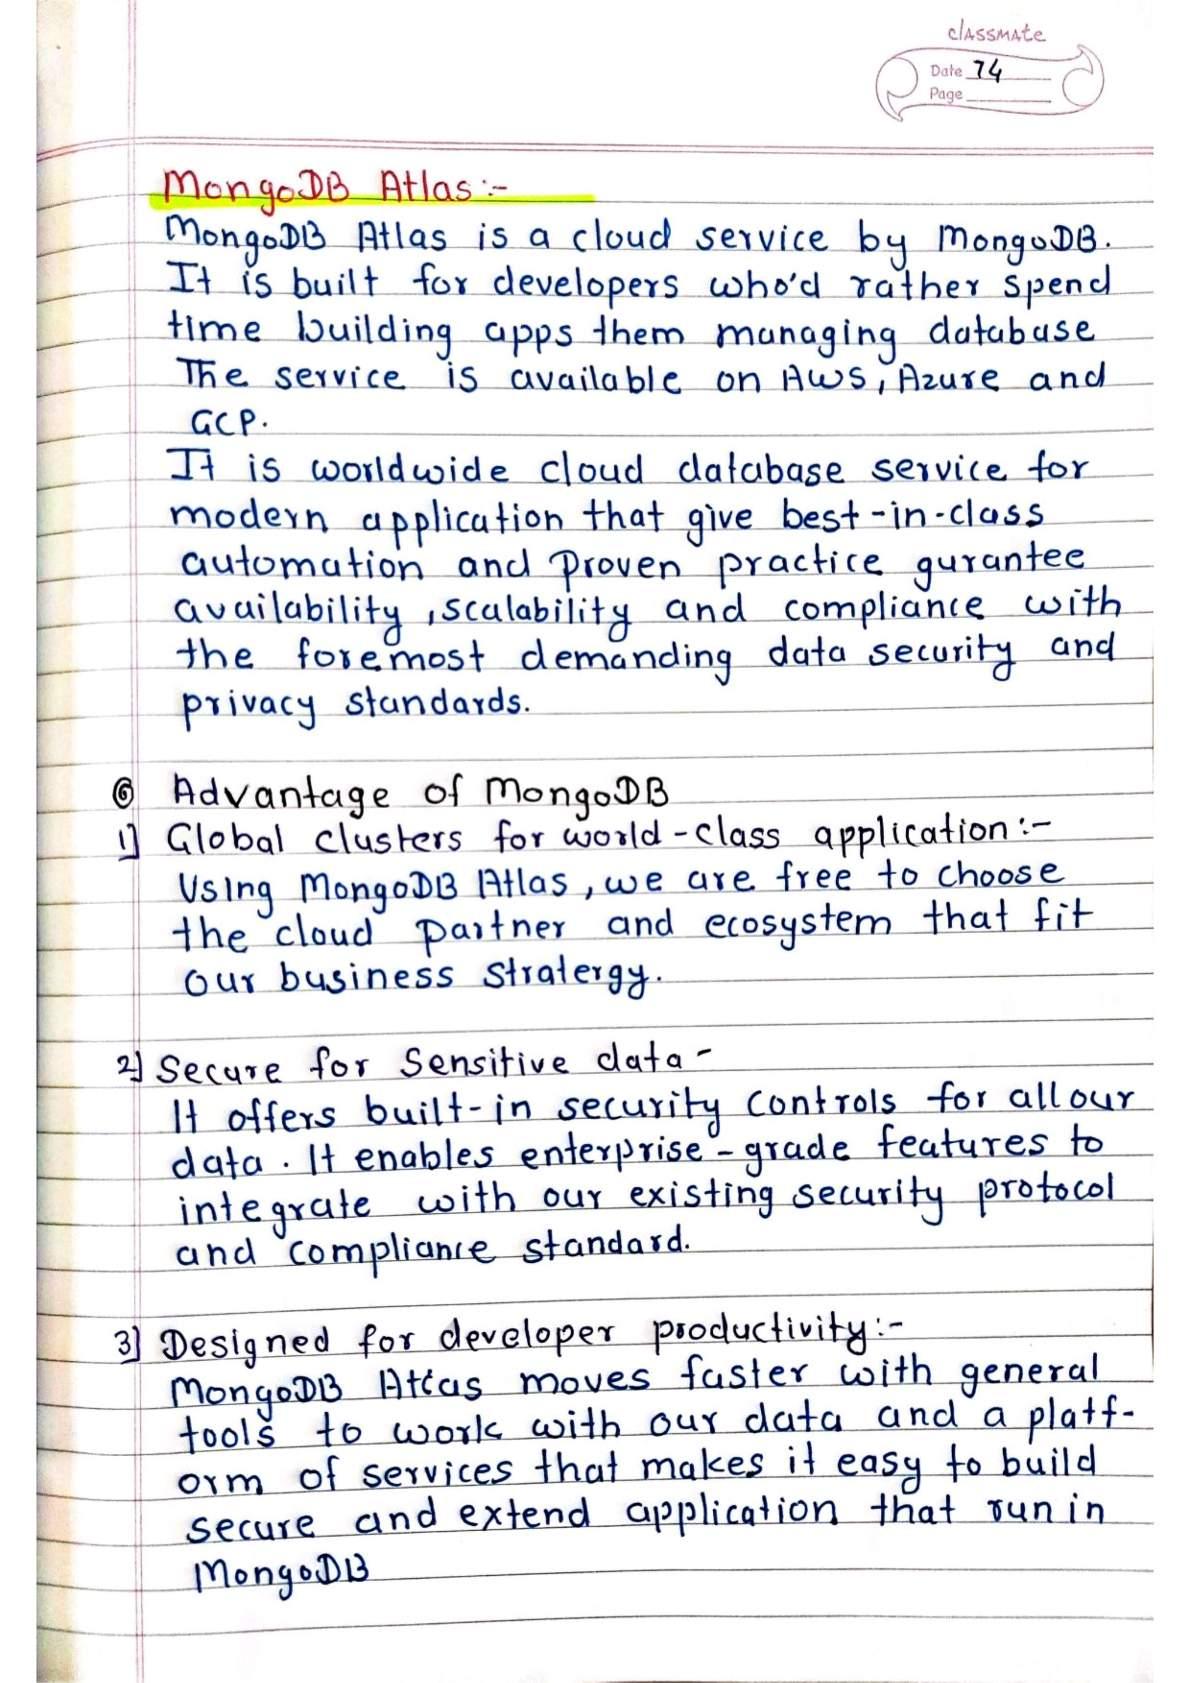 classmate
Date 74
Page
MongoDB Atlas :-
MongoDB Atlas is a cloud service by MongoDB.
It is built for developers who'd rather spend
time building apps them managing database
The service is available on AWS, Azure and
GCP.
It is worldwide cloud database service for
modern application that give best-in-class
automation and proven practice gurantee
availability, scalability and compliance with
the foremost demanding data security and
privacy standards.
⑥ Advantage of MongoDB
1] Global clusters for world-class application :-
Using MongoDB Atlas, we are free to choose
the cloud partner and ecosystem that fit
our business stratergy.
2] Secure for sensitive data -
It offers built-in security controls for all our
data. It enables enterprise-grade features to
integrate with our existing security protocol
and compliance standard.
3] Designed for developer productivity :-
MongoDB Atlas moves faster with general
tools to work with our data and a platf-
orm of services that makes it easy to build
secure and extend application that run in
MongoDB